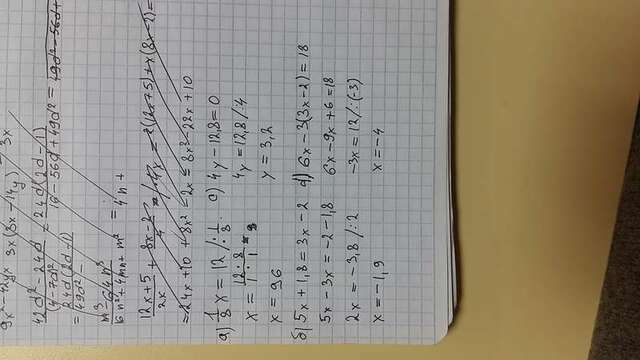 9x² - 42yx 3x(3x - 14y) 3x
42d² - 24d / (4 - 7d)² = 24d(2d - 1) / 16 - 56d + 49d² = 49d² - 56d +
= 24d(2d - 1) / 49d² -
m³ - 64n³ / 16n² + 4mn + m² = 4n +
12x + 5 / 2x + 8x - 2 / 4 = / · 4x = 2(12x + 5) + x(8x - 2) =
= 24x + 10 + 8x² - 2x = 8x² - 22x + 10
а) 1/8 x = 12 /: 1/8
x = 12 · 8 / 1 · 1
x = 96
б) 5x + 1,8 = 3x - 2
5x - 3x = -2 - 1,8
2x = -3,8 /: 2
x = -1,9
c) 4y - 12,8 = 0
4y = 12,8 /: 4
y = 3,2
d) 6x - 3(3x - 2) = 18
6x - 9x + 6 = 18
-3x = 12 /: (-3)
x = -4